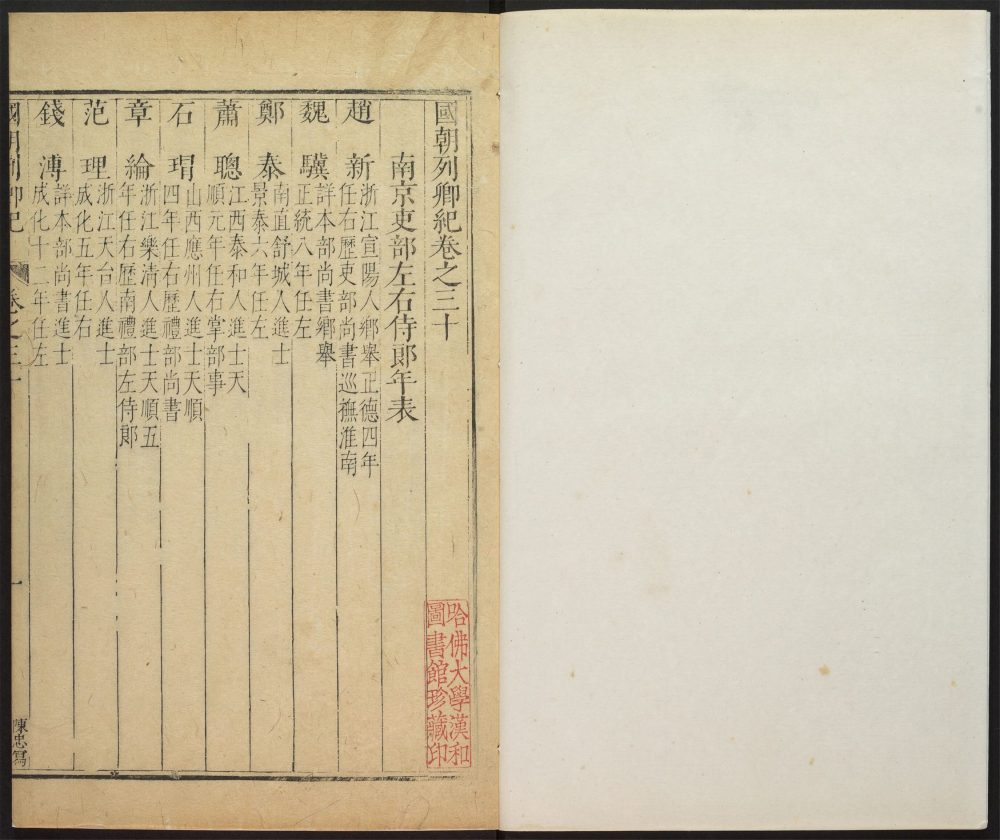 國朝列卿紀卷之三十
南京吏部左右侍郎年表
趙新
浙江宣陽人鄉舉正德四年
任右歷吏部尚書巡撫淮南
魏驥
詳本部尚書鄉舉
正統八年任左
鄭泰
南直舒城人進士
景泰六年任左
蕭聰
江西泰和人進士天
順元年任右掌部事
石瑁
山西應州人進士天順
四年任右歷禮部尚書
章綸
浙江樂清人進士天順五
年任右歷南禮部左侍郎
范理
浙江天台人進士
成化五年任右
錢溥
詳本部尚書進士
成化十二年任左
國朝列卿紀
卷之三十
一
陳忠寫
哈佛大學漢和
圖書館珍藏印